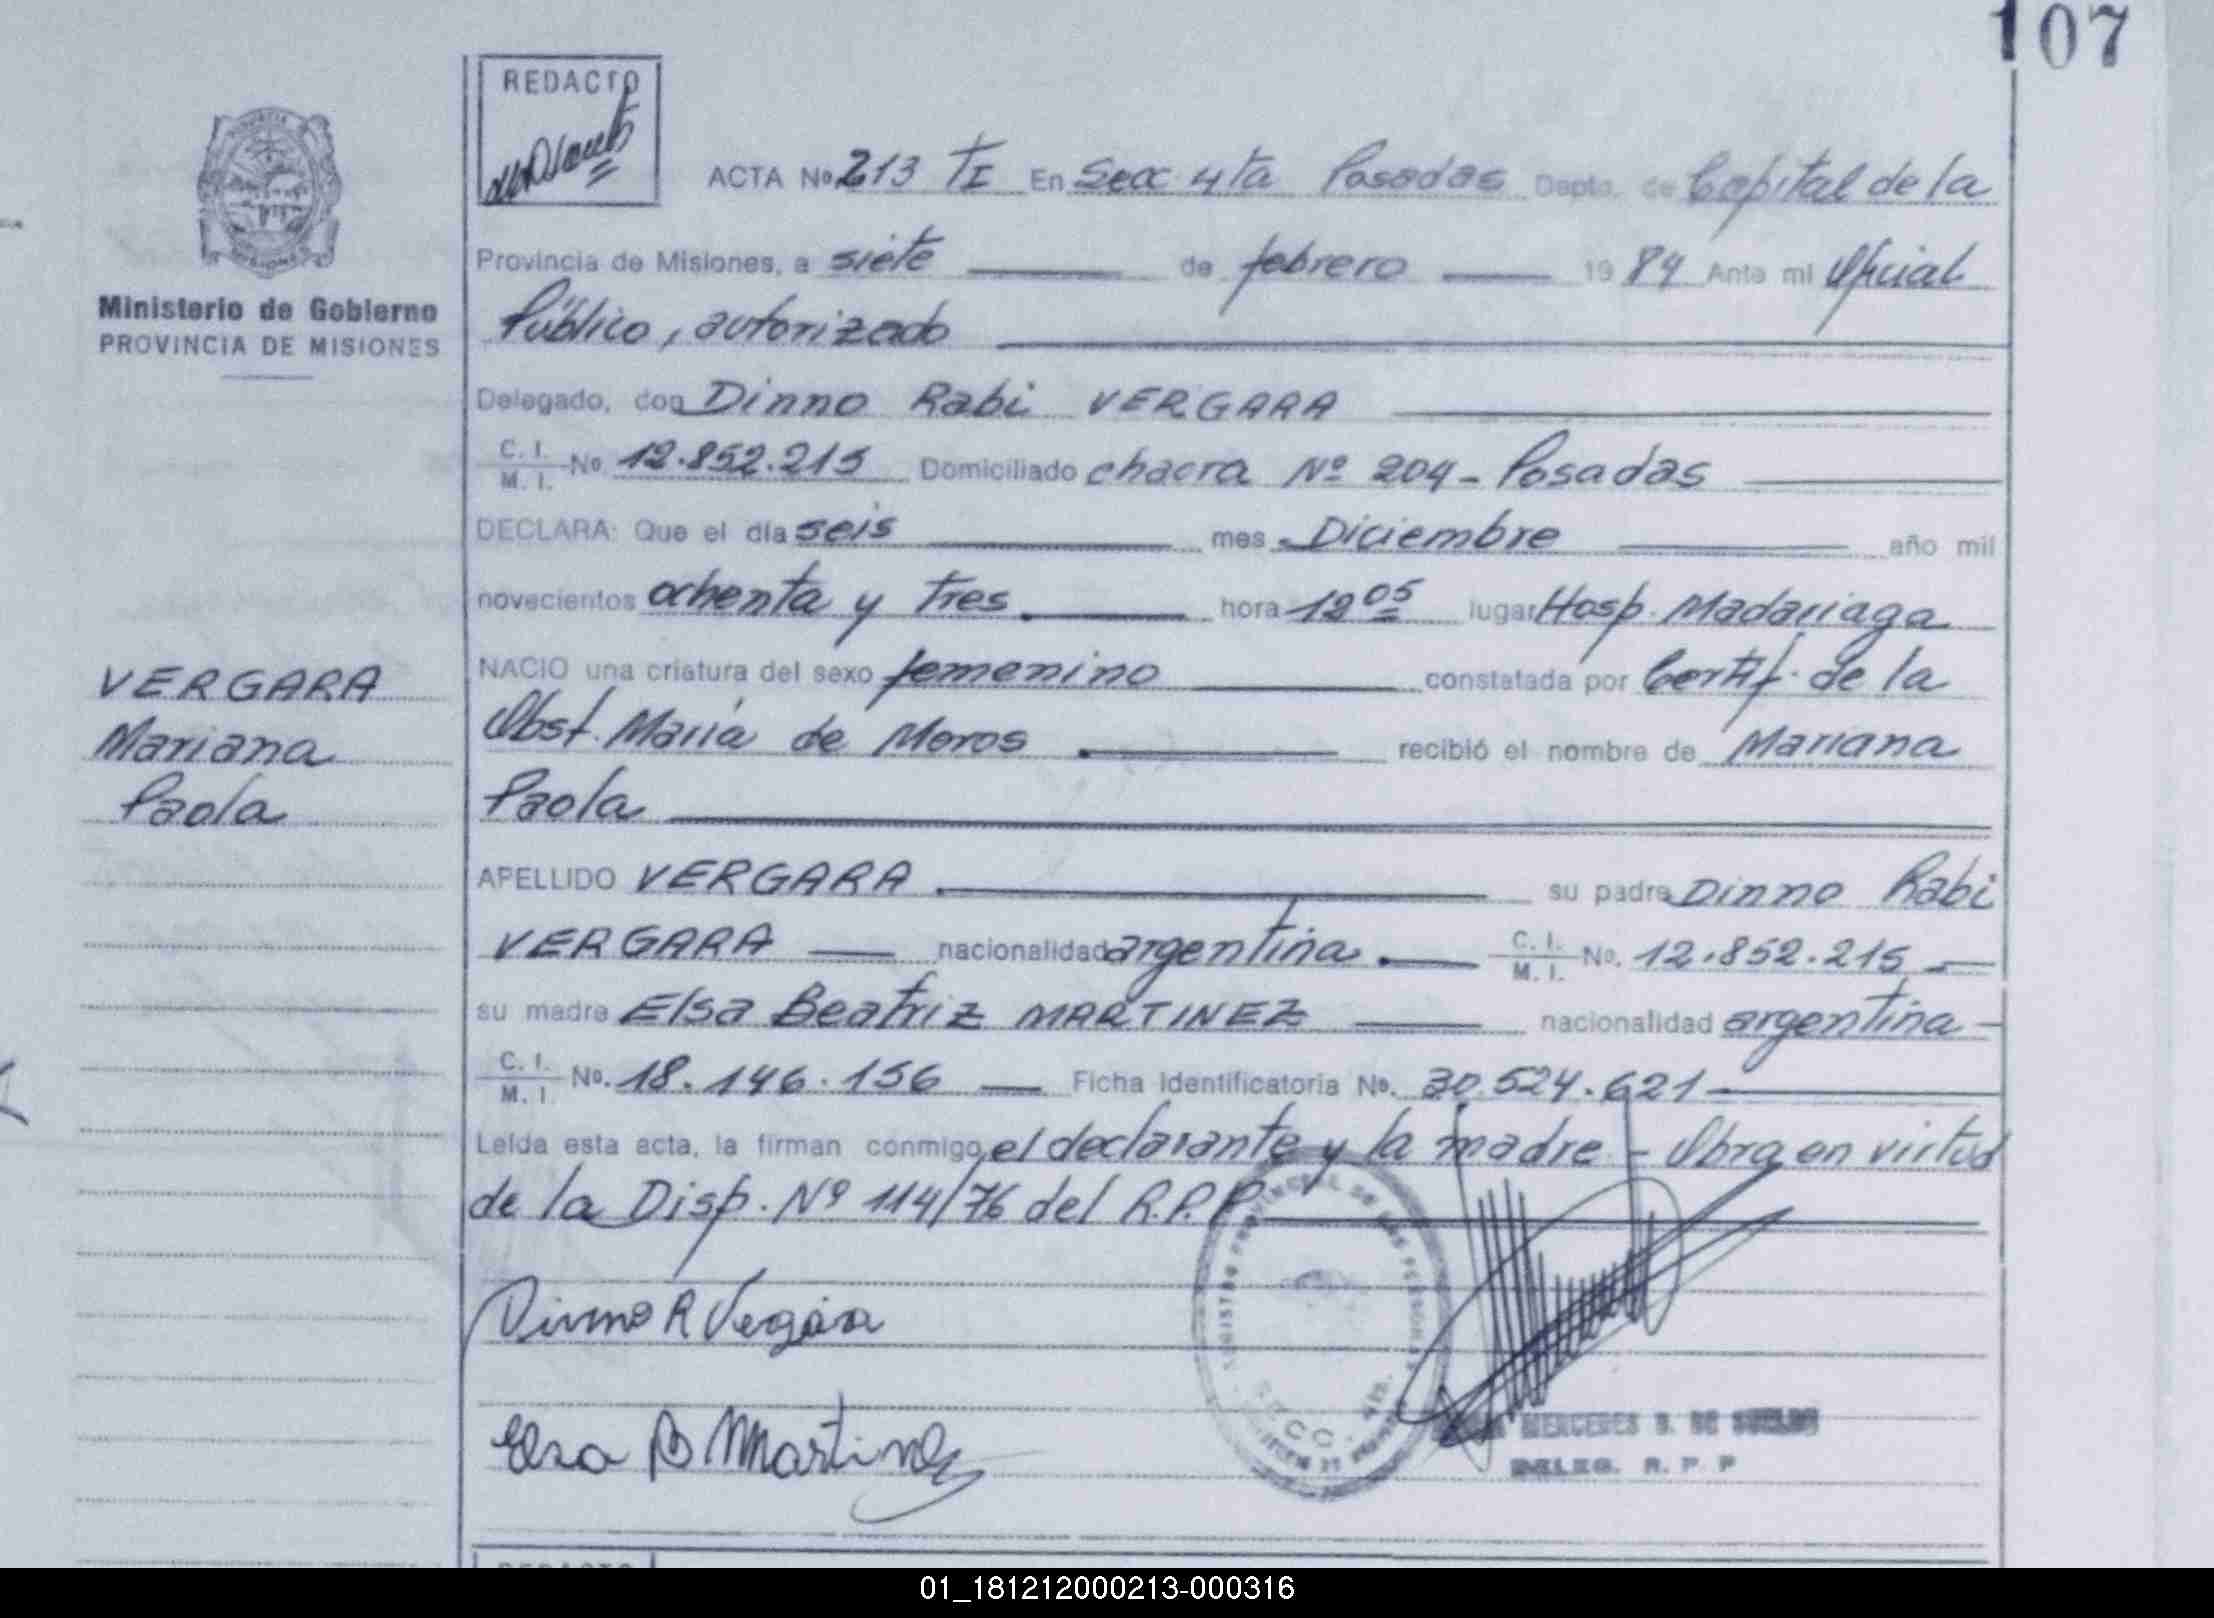 107
REDACTO
ACTA No 213 TI En Secc 4ta Posadas Depto. de Capital de la
Provincia de Misiones, a siete de febrero 1984 Ante mi Oficial
Público, autorizado
Ministerio de Gobierno
PROVINCIA DE MISIONES
Delegado, don Dinno Rabi VERGARA
C. I. M. I. No 12.852.215 Domiciliado chacra Nº 204 - Posadas
DECLARA: Que el día seis mes Diciembre año mil
novecientos ochenta y tres hora 12 05 lugar Hosp. Madariaga
VERGARA
Mariana
Paola
NACIO una criatura del sexo femenino constatada por Certif. de la
Obst. María de Moros recibió el nombre de Mariana
Paola
APELLIDO VERGARA su padre Dinno Rabi
VERGARA nacionalidad argentina C. I. M. I. No. 12.852.215
su madre Elsa Beatriz MARTINEZ nacionalidad argentina
C. I. M. I. No. 18.146.156 Ficha Identificatoria No. 30.524.621
Leída esta acta, la firman conmigo el declarante y la madre - Obra en virtud
de la Disp. Nº 114/76 del R.P.P
Dinno R Vergara
Elsa B Martinez
MERCEDES
DELEG. R. P. P
REDACTO
01_181212000213-000316